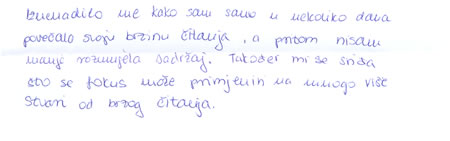 Iznenadilo me kako sam samo u nekoliko dana
povećalo svoju brzinu čitanja, a pritom nisam
manje razumjela sadržaj. Također mi se sviđa
što se fokus može primjeniti na mnogo više
stvari od brzog čitanja.